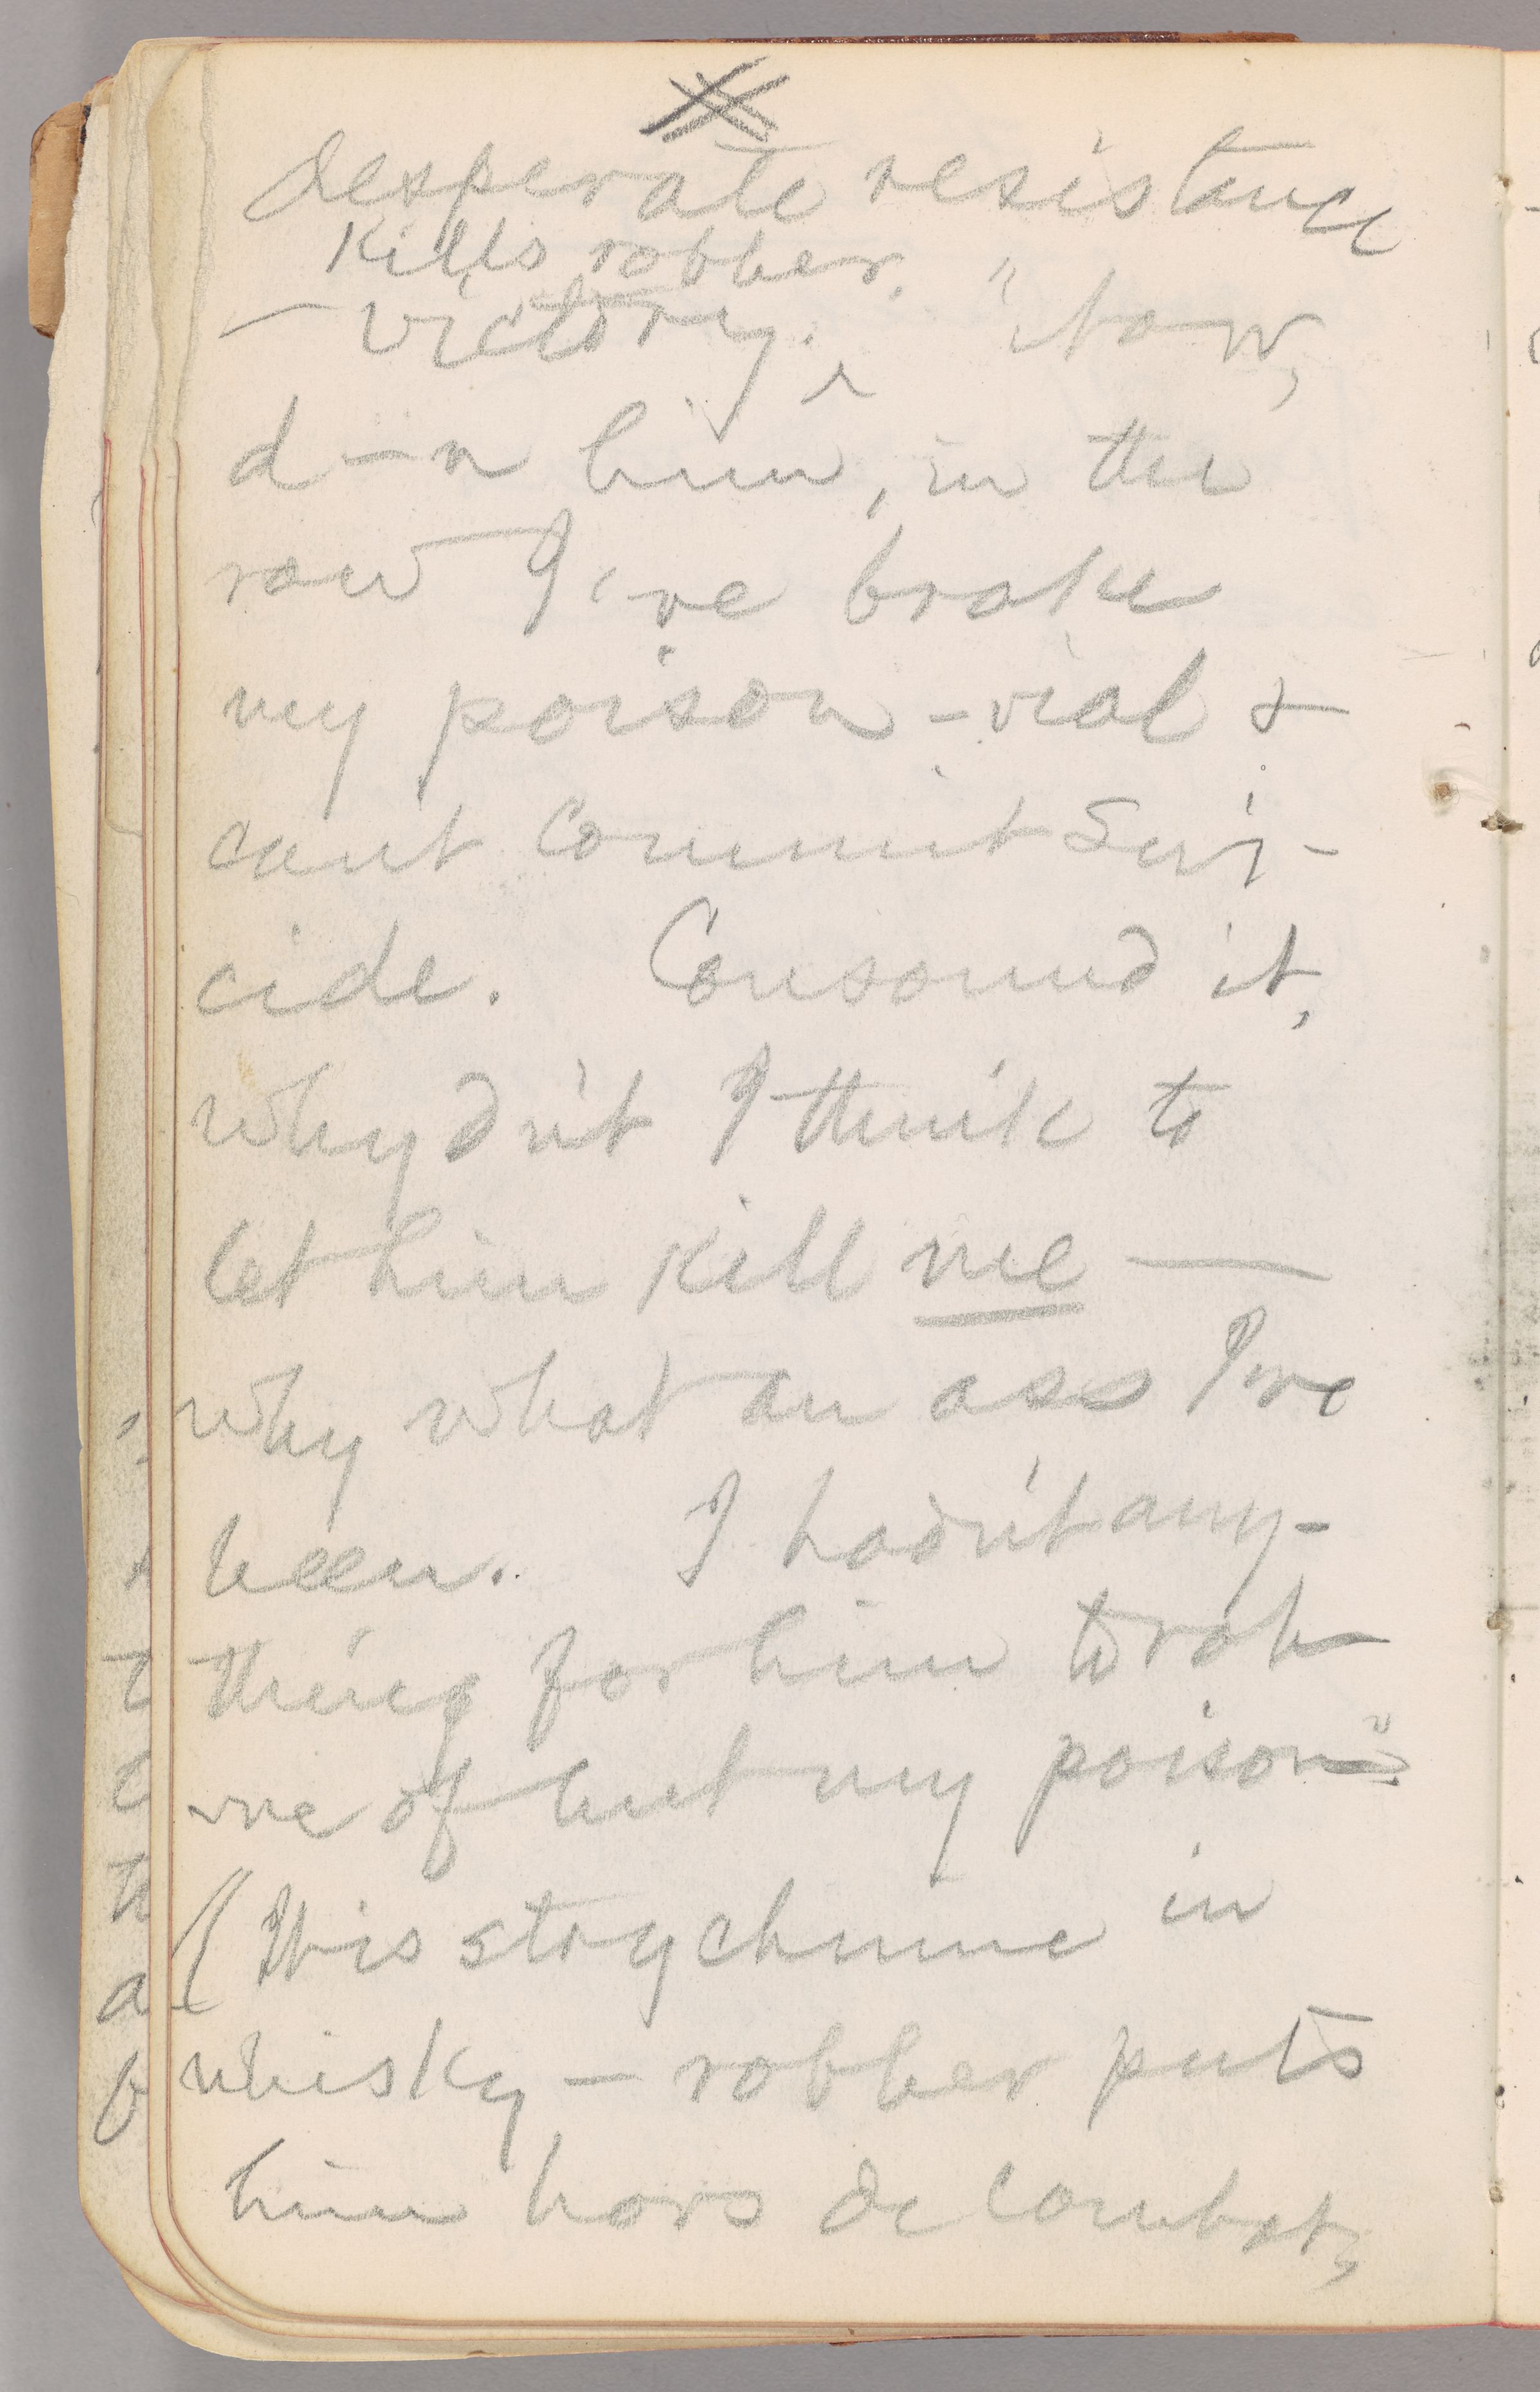 desperate resistance
kills robber.
— victory. ‸ "Now,
d—n him, in the
row I've broke
my poison-vial &
can't commit sui-
cide. Consound it,
why dn't I think to
let him kill me —
why what an ass I've
been. I hadn't any-
thing for him to rob
me of but my poison"
(His strychnine in
whisky — robber puts
him hors de combat,